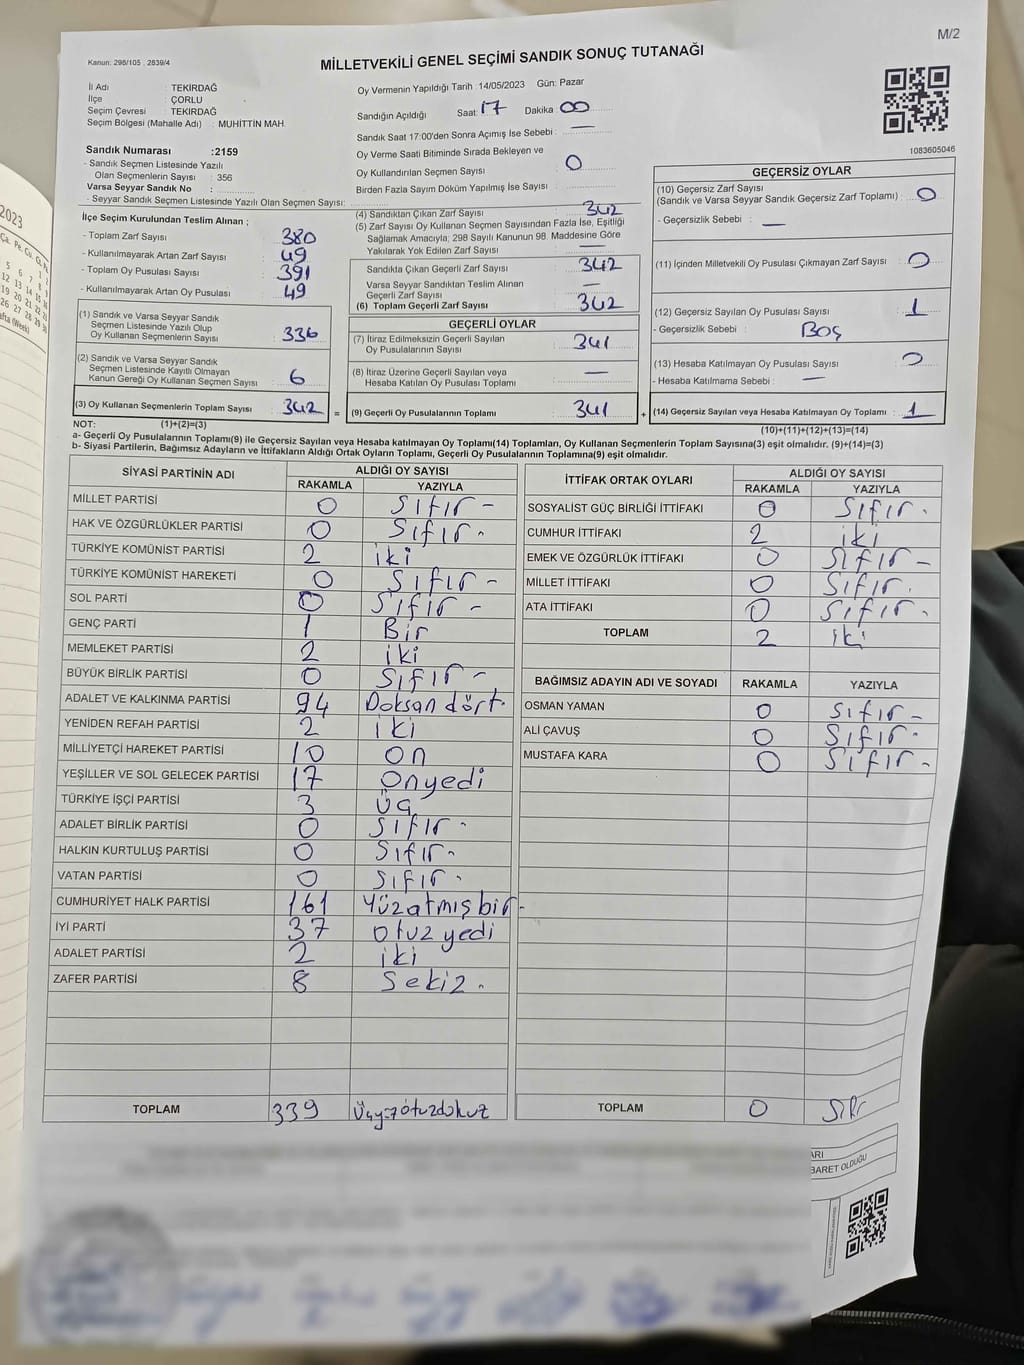 M/2
Kanun: 298/105 , 2839/4
MİLLETVEKİLİ GENEL SEÇİMİ SANDIK SONUÇ TUTANAĞI
İl Adı : TEKİRDAĞ
İlçe : ÇORLU
Seçim Çevresi : TEKİRDAĞ
Seçim Bölgesi (Mahalle Adı) : MUHİTTİN MAH.
Sandık Numarası :2159
- Sandık Seçmen Listesinde Yazılı
Olan Seçmenlerin Sayısı : 356
Varsa Seyyar Sandık No :
- Seyyar Sandık Seçmen Listesinde Yazılı Olan Seçmen Sayısı:
Oy Vermenin Yapıldığı Tarih :14/05/2023 Gün: Pazar
Sandığın Açıldığı Saat: 17 Dakika : 00
Sandık Saat 17:00'den Sonra Açımış İse Sebebi : —
Oy Verme Saati Bitiminde Sırada Bekleyen ve
Oy Kullandırılan Seçmen Sayısı : 0
Birden Fazla Sayım Döküm Yapılmış İse Sayısı :
1083605046
İlçe Seçim Kurulundan Teslim Alınan ;
- Toplam Zarf Sayısı : 380
- Kullanılmayarak Artan Zarf Sayısı : 49
- Toplam Oy Pusulası Sayısı : 391
- Kullanılmayarak Artan Oy Pusulası : 49
(1) Sandık ve Varsa Seyyar Sandık
Seçmen Listesinde Yazılı Olup
Oy Kullanan Seçmenlerin Sayısı : 336
(2) Sandık ve Varsa Seyyar Sandık
Seçmen Listesinde Kayıtlı Olmayan
Kanun Gereği Oy Kullanan Seçmen Sayısı : 6
(3) Oy Kullanan Seçmenlerin Toplam Sayısı : 342 =
(4) Sandıktan Çıkan Zarf Sayısı : 342
(5) Zarf Sayısı Oy Kullanan Seçmen Sayısından Fazla İse, Eşitliği
Sağlamak Amacıyla, 298 Sayılı Kanunun 98. Maddesine Göre
Yakılarak Yok Edilen Zarf Sayısı : —
Sandıkta Çıkan Geçerli Zarf Sayısı : 342
Varsa Seyyar Sandıktan Teslim Alınan
Geçerli Zarf Sayısı : —
(6) Toplam Geçerli Zarf Sayısı : 342
GEÇERLİ OYLAR
(7) İtiraz Edilmeksizin Geçerli Sayılan
Oy Pusulalarının Sayısı : 341
(8) İtiraz Üzerine Geçerli Sayılan veya
Hesaba Katılan Oy Pusulası Toplamı : —
(9) Geçerli Oy Pusulalarının Toplamı : 341 +
GEÇERSİZ OYLAR
(10) Geçersiz Zarf Sayısı
(Sandık ve Varsa Seyyar Sandık Geçersiz Zarf Toplamı) : 0
- Geçersizlik Sebebi : —
(11) İçinden Milletvekili Oy Pusulası Çıkmayan Zarf Sayısı : 0
(12) Geçersiz Sayılan Oy Pusulası Sayısı : 1
- Geçersizlik Sebebi : Boş
(13) Hesaba Katılmayan Oy Pusulası Sayısı : 0
- Hesaba Katılmama Sebebi : —
(14) Geçersiz Sayılan veya Hesaba Katılmayan Oy Toplamı : 1
NOT: (1)+(2)=(3)
(10)+(11)+(12)+(13)=(14)
a- Geçerli Oy Pusulalarının Toplamı(9) ile Geçersiz Sayılan veya Hesaba katılmayan Oy Toplamı(14) Toplamları, Oy Kullanan Seçmenlerin Toplam Sayısına(3) eşit olmalıdır. (9)+(14)=(3)
b- Siyasi Partilerin, Bağımsız Adayların ve İttifakların Aldığı Ortak Oyların Toplamı, Geçerli Oy Pusulalarının Toplamına(9) eşit olmalıdır.
SİYASİ PARTİNİN ADI ALDIĞI OY SAYISI
RAKAMLA YAZIYLA
MİLLET PARTİSİ 0 Sıfır -
HAK VE ÖZGÜRLÜKLER PARTİSİ 0 Sıfır -
TÜRKİYE KOMÜNİST PARTİSİ 2 iki
TÜRKİYE KOMÜNİST HAREKETİ 0 Sıfır -
SOL PARTİ 0 Sıfır -
GENÇ PARTİ 1 Bir
MEMLEKET PARTİSİ 2 iki
BÜYÜK BİRLİK PARTİSİ 0 Sıfır -
ADALET VE KALKINMA PARTİSİ 94 Doksan dört
YENİDEN REFAH PARTİSİ 2 iki
MİLLİYETÇİ HAREKET PARTİSİ 10 on
YEŞİLLER VE SOL GELECEK PARTİSİ 17 onyedi
TÜRKİYE İŞÇİ PARTİSİ 3 üç
ADALET BİRLİK PARTİSİ 0 Sıfır -
HALKIN KURTULUŞ PARTİSİ 0 Sıfır -
VATAN PARTİSİ 0 Sıfır -
CUMHURİYET HALK PARTİSİ 161 Yüzatmışbir -
İYİ PARTİ 37 otuz yedi
ADALET PARTİSİ 2 iki
ZAFER PARTİSİ 8 Sekiz .
TOPLAM 339 Üçyüzotuzdokuz
İTTİFAK ORTAK OYLARI ALDIĞI OY SAYISI
RAKAMLA YAZIYLA
SOSYALİST GÜÇ BİRLİĞİ İTTİFAKI 0 Sıfır .
CUMHUR İTTİFAKI 2 iki
EMEK VE ÖZGÜRLÜK İTTİFAKI 0 Sıfır -
MİLLET İTTİFAKI 0 Sıfır.
ATA İTTİFAKI 0 Sıfır -
TOPLAM 2 iki
BAĞIMSIZ ADAYIN ADI VE SOYADI RAKAMLA YAZIYLA
OSMAN YAMAN 0 Sıfır -
ALİ ÇAVUŞ 0 Sıfır -
MUSTAFA KARA 0 Sıfır -
TOPLAM 0 Sıfır
ARI
BARET OLDUĞU
2023
Ça. Pe. Cu.